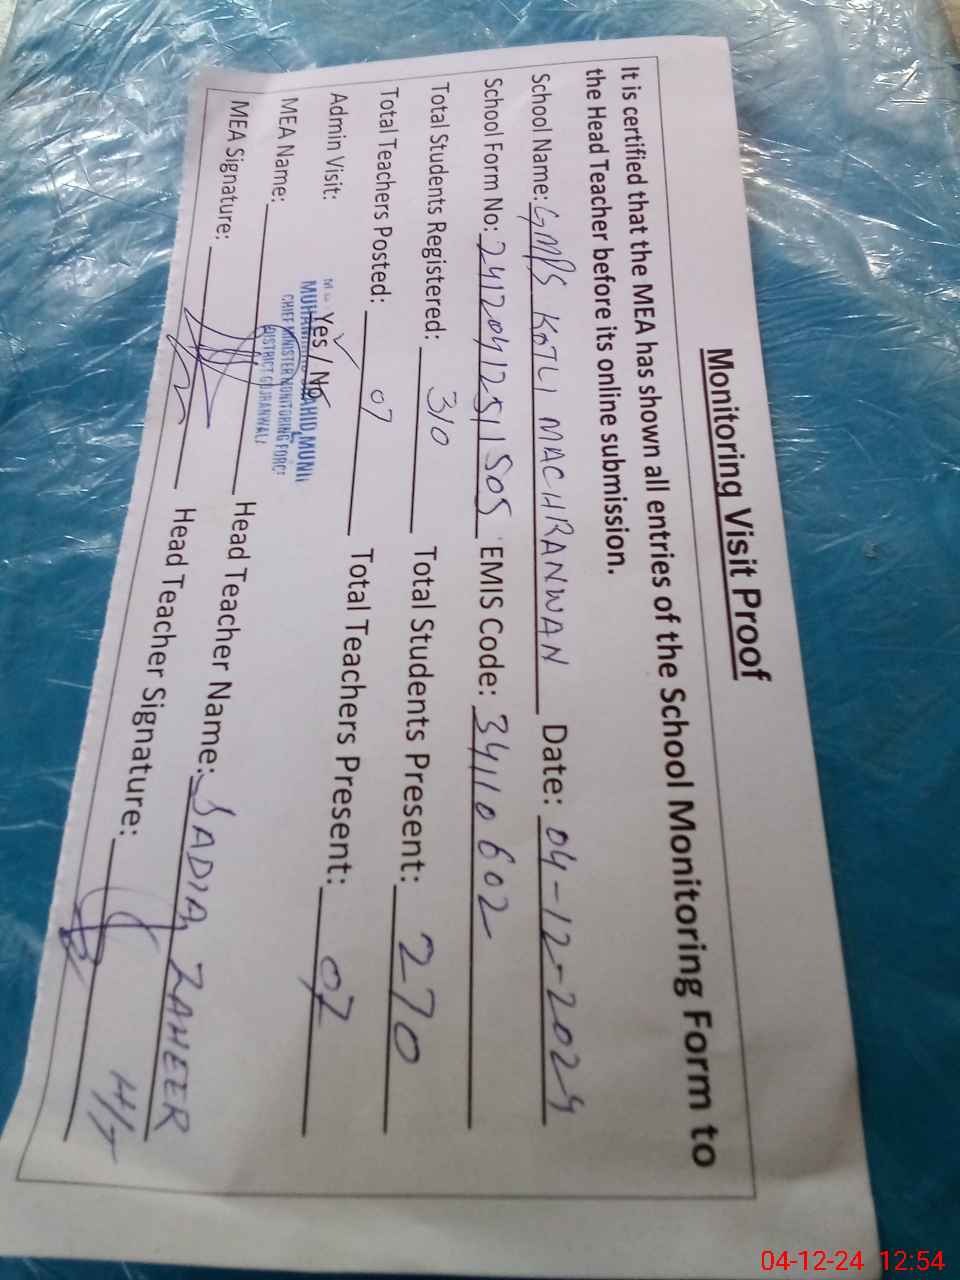 Monitoring Visit Proof
It is certified that the MEA has shown all entries of the School Monitoring Form to
the Head Teacher before its online submission.
School Name: GMPS KOTLI MACHRANWAN Date: 04-12-2024
School Form No: 24120412511505 EMIS Code: 34110602
Total Students Registered: 310 Total Students Present: 270
Total Teachers Posted: 07 Total Teachers Present: 07
Admin Visit: Yes / No
MEA Name: Head Teacher Name: SADIA ZAHEER
CHIEF MINISTER MONITORING FORCE
DISTRICT GUJRANWALA
MEA Signature: Head Teacher Signature: H/T
04-12-24 12:54